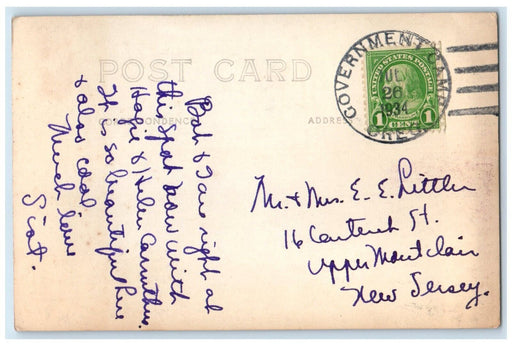 POST CARD
CORRESPONDENCE
ADDRESS
GOVERNMENT CAMP
JUL
26
1934
OREG.
UNITED STATES POSTAGE
1 CENT 1
Bab & I are right at
this spot now with
Hazie & Helen Carruthers.
It is so beautiful here
& also cool
Much love
Scot.
Mr. & Mrs. E. E. Littler
16 St.
Upper Montclair
New Jersey.